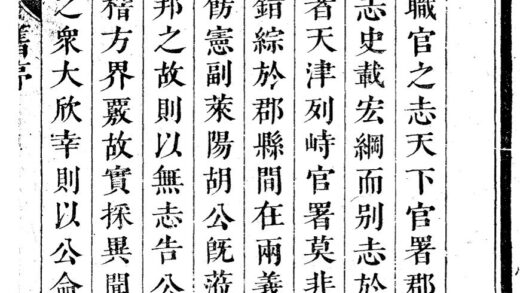 職官之志天下官署郡
志史載宏綱而别志於
者天津列峙官署莫非
錯綜於郡縣間在兩義
飭憲副萊陽胡公旣蒞
邦之故則以無志告公
稽方界覈故實採異聞
之衆大欣幸則以公命
舊序